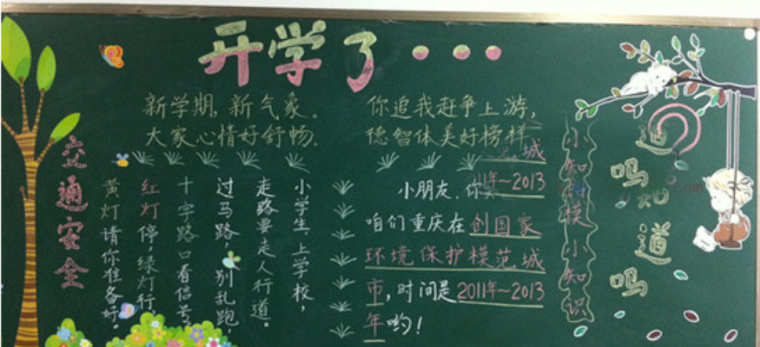 开学了···
新学期,新气象。
大家心情好舒畅.
你追我赶争上游,
德智体美好榜样
交通安全
小学生,上学校,
走路要走人行道。
过马路,别乱跑,
十字路口看信号
红灯停,绿灯行
黄灯请你准备好。
小朋友,你
城
年~2013
咱们重庆在创国家
环境保护模范城
市,时间是2011年~2013
年哟!
小知 模小知识
道吗知道吗